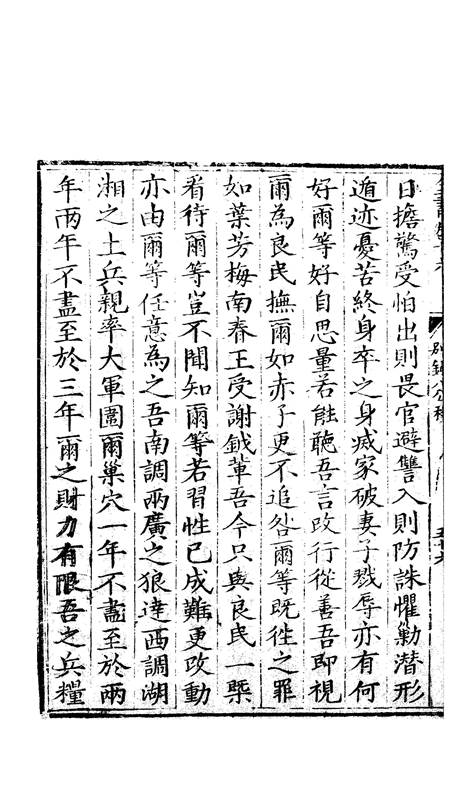 日擔驚受怕出則畏官避讐入則防誅懼勦潜形
遁迹憂苦終身卒之身滅家破妻子戮辱亦有何
好爾等好自思量若能聽吾言改行從善吾即視
爾為良民撫爾如赤子更不追咎爾等既徃之罪
如葉芳梅南春王受謝鉞輩吾今只與良民一槩
看待爾等豈不聞知爾等若習性已成難更改動
亦由爾等任意為之吾南調兩廣之狼達西調湖
湘之土兵親率大軍圍爾巢穴一年不盡至於兩
年兩年不盡至於三年爾之財力有限吾之兵糧